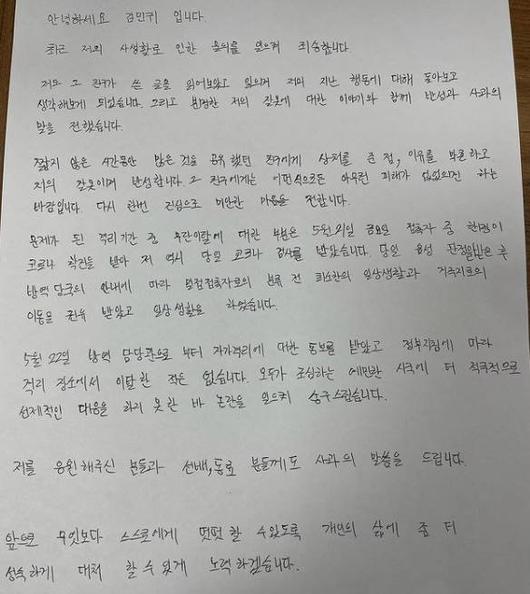 안녕하세요 김민귀 입니다.
최근 저의 사생활로 인한 물의를 일으켜 죄송합니다.
저도 그 친구가 쓴 글을 읽어보았고 읽으며 저의 지난 행동에 대해 돌아보고
생각해보게 되었습니다. 그리고 분명한 저의 잘못에 대한 이야기와 함께 반성과 사과의
말을 전했습니다.
짧지 않은 시간동안 많은 것을 공유했던 친구에게 상처를 준 점, 이유를 불문하고
저의 잘못이며 반성합니다. 그 친구에게는 어떤식으로든 아무런 피해가 없었으면 하는
바람입니다. 다시 한번 진심으로 미안한 마음을 전합니다.
문제가 된 격리기간 중 무단이탈에 대한 부분은 5월 21일 금요일 접촉자 중 한명이
코로나 확진을 받아 저 역시 당일 코로나 검사를 받았습니다. 당일 음성 판정받은 후
방역 당국의 안내에 따라 밀접접촉자로의 분류 전 최소한의 일상생활과 거주지로의
이동을 권유 받았고 일상생활을 하였습니다.
5월 22일 방역 담당관으로 부터 자가격리에 대한 통보를 받았고 정부지침에 따라
격리 장소에서 이탈한 적은 없습니다. 모두가 조심하는 예민한 시국에 더 적극적으로
선제적인 대응을 하지 못한 바 논란을 일으켜 송구스럽습니다.
저를 응원해주신 분들과 선배, 동료 분들께도 사과의 말씀을 드립니다.
앞으로 무엇보다 스스로에게 떳떳할 수 있도록 개인의 삶에 좀 더
성숙하게 대처 할 수 있게 노력하겠습니다.